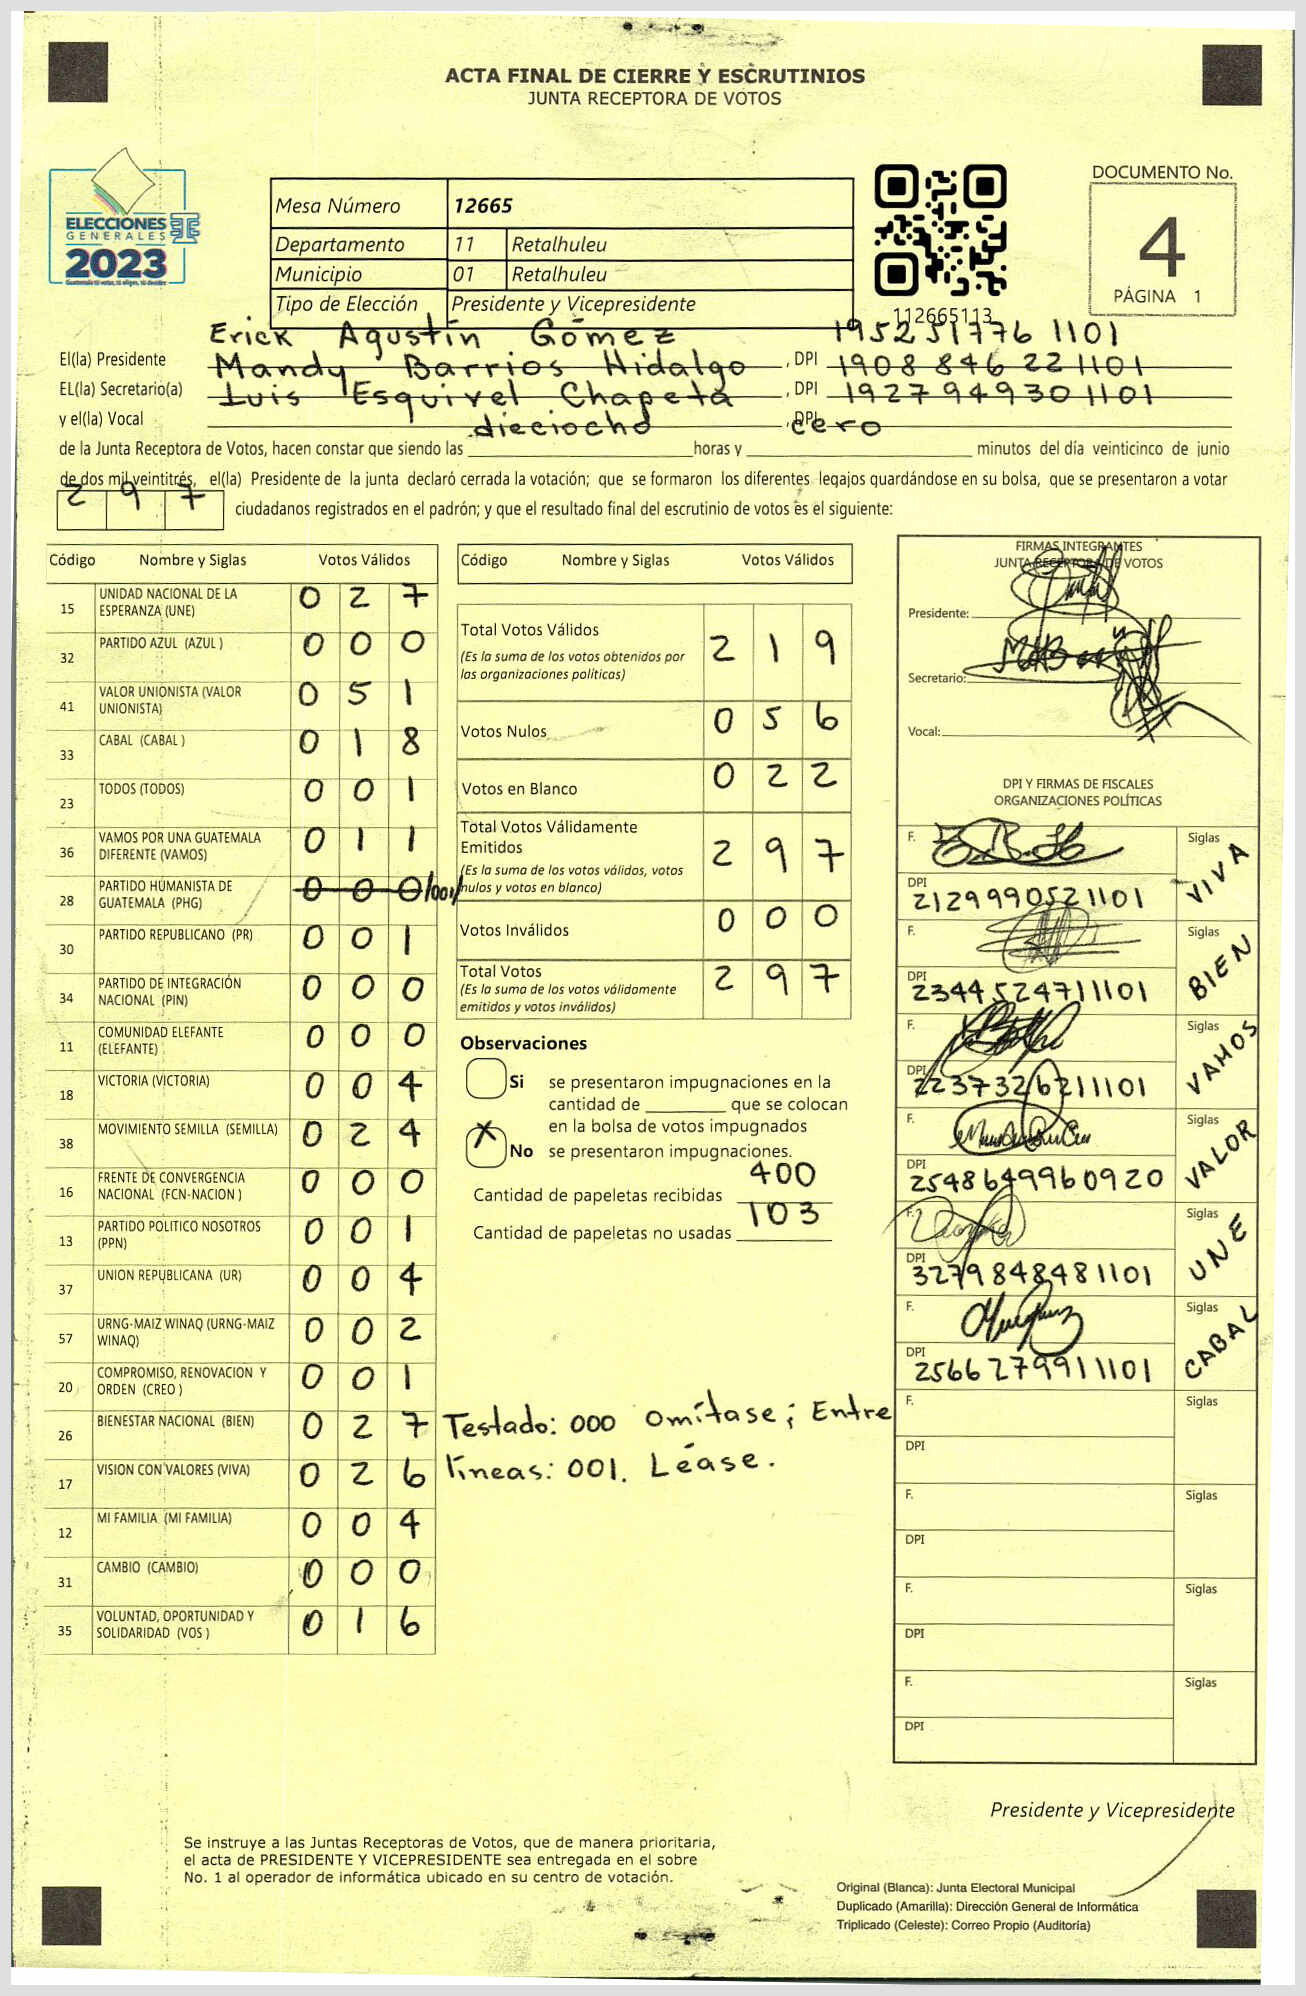 ACTA FINAL DE CIERRE Y ESCRUTINIOS
JUNTA RECEPTORA DE VOTOS
ELECCIONES
GENERALES
2023
Mesa Número 12665
Departamento 11 Retalhuleu
Municipio 01 Retalhuleu
Tipo de Elección Presidente y Vicepresidente
112665113
DOCUMENTO No.
4
PÁGINA 1
Erick Agustín Gómez 195251776 1101
El(la) Presidente Mandy Barrios Hidalgo , DPI 1908 846 22 1101
EL(la) Secretario(a) Luis Esquivel Chapeta , DPI 1927 94930 1101
y el(la) Vocal dieciocho , DPI cero
de la Junta Receptora de Votos, hacen constar que siendo las horas y minutos del día veinticinco de junio
de dos mil veintitrés, el(la) Presidente de la junta declaró cerrada la votación; que se formaron los diferentes legajos quardándose en su bolsa, que se presentaron a votar
297 ciudadanos registrados en el padrón; y que el resultado final del escrutinio de votos es el siguiente:
Código Nombre y Siglas Votos Válidos
15 UNIDAD NACIONAL DE LA ESPERANZA (UNE) 0 2 7
32 PARTIDO AZUL (AZUL ) 0 0 0
41 VALOR UNIONISTA (VALOR UNIONISTA) 0 5 1
33 CABAL (CABAL ) 0 1 8
23 TODOS (TODOS) 0 0 1
36 VAMOS POR UNA GUATEMALA DIFERENTE (VAMOS) 0 1 1
28 PARTIDO HUMANISTA DE GUATEMALA (PHG) 0 0 0 /001/
30 PARTIDO REPUBLICANO (PR) 0 0 1
34 PARTIDO DE INTEGRACIÓN NACIONAL (PIN) 0 0 0
11 COMUNIDAD ELEFANTE (ELEFANTE) 0 0 0
18 VICTORIA (VICTORIA) 0 0 4
38 MOVIMIENTO SEMILLA (SEMILLA) 0 2 4
16 FRENTE DE CONVERGENCIA NACIONAL (FCN-NACION ) 0 0 0
13 PARTIDO POLITICO NOSOTROS (PPN) 0 0 1
37 UNION REPUBLICANA (UR) 0 0 4
57 URNG-MAIZ WINAQ (URNG-MAIZ WINAQ) 0 0 2
20 COMPROMISO, RENOVACION Y ORDEN (CREO ) 0 0 1
26 BIENESTAR NACIONAL (BIEN) 0 2 7
17 VISION CON VALORES (VIVA) 0 2 6
12 MI FAMILIA (MI FAMILIA) 0 0 4
31 CAMBIO (CAMBIO) 0 0 0
35 VOLUNTAD, OPORTUNIDAD Y SOLIDARIDAD (VOS ) 0 1 6
Código Nombre y Siglas Votos Válidos
Total Votos Válidos 2 1 9
(Es la suma de los votos obtenidos por
las organizaciones políticas)
Votos Nulos 0 5 6
Votos en Blanco 0 2 2
Total Votos Válidamente
Emitidos 2 9 7
(Es la suma de los votos válidos, votos
nulos y votos en blanco)
Votos Inválidos 0 0 0
Total Votos 2 9 7
(Es la suma de los votos válidamente
emitidos y votos inválidos)
Observaciones
Si se presentaron impugnaciones en la
cantidad de que se colocan
en la bolsa de votos impugnados
X No se presentaron impugnaciones.
Cantidad de papeletas recibidas 400
Cantidad de papeletas no usadas 103
Testado: 000 Omítase; Entre
líneas: 001. Léase.
FIRMAS INTEGRANTES
JUNTA RECEPTORA DE VOTOS
Presidente:
Secretario:
Vocal:
DPI Y FIRMAS DE FISCALES
ORGANIZACIONES POLÍTICAS
F. Siglas VIVA
DPI 2129990521101
F. Siglas BIEN
DPI 2344524711101
F. Siglas VAMOS
DPI 2237326211101
F. Siglas VALOR
DPI 2548649960920
F. Siglas UNE
DPI 3279848481101
F. Siglas CABAL
DPI 2566279911101
F. Siglas
DPI
F. Siglas
DPI
F. Siglas
DPI
F. Siglas
DPI
Presidente y Vicepresidente
Se instruye a las Juntas Receptoras de Votos, que de manera prioritaria,
el acta de PRESIDENTE Y VICEPRESIDENTE sea entregada en el sobre
No. 1 al operador de informática ubicado en su centro de votación.
Original (Blanca): Junta Electoral Municipal
Duplicado (Amarilla): Dirección General de Informática
Triplicado (Celeste): Correo Propio (Auditoría)